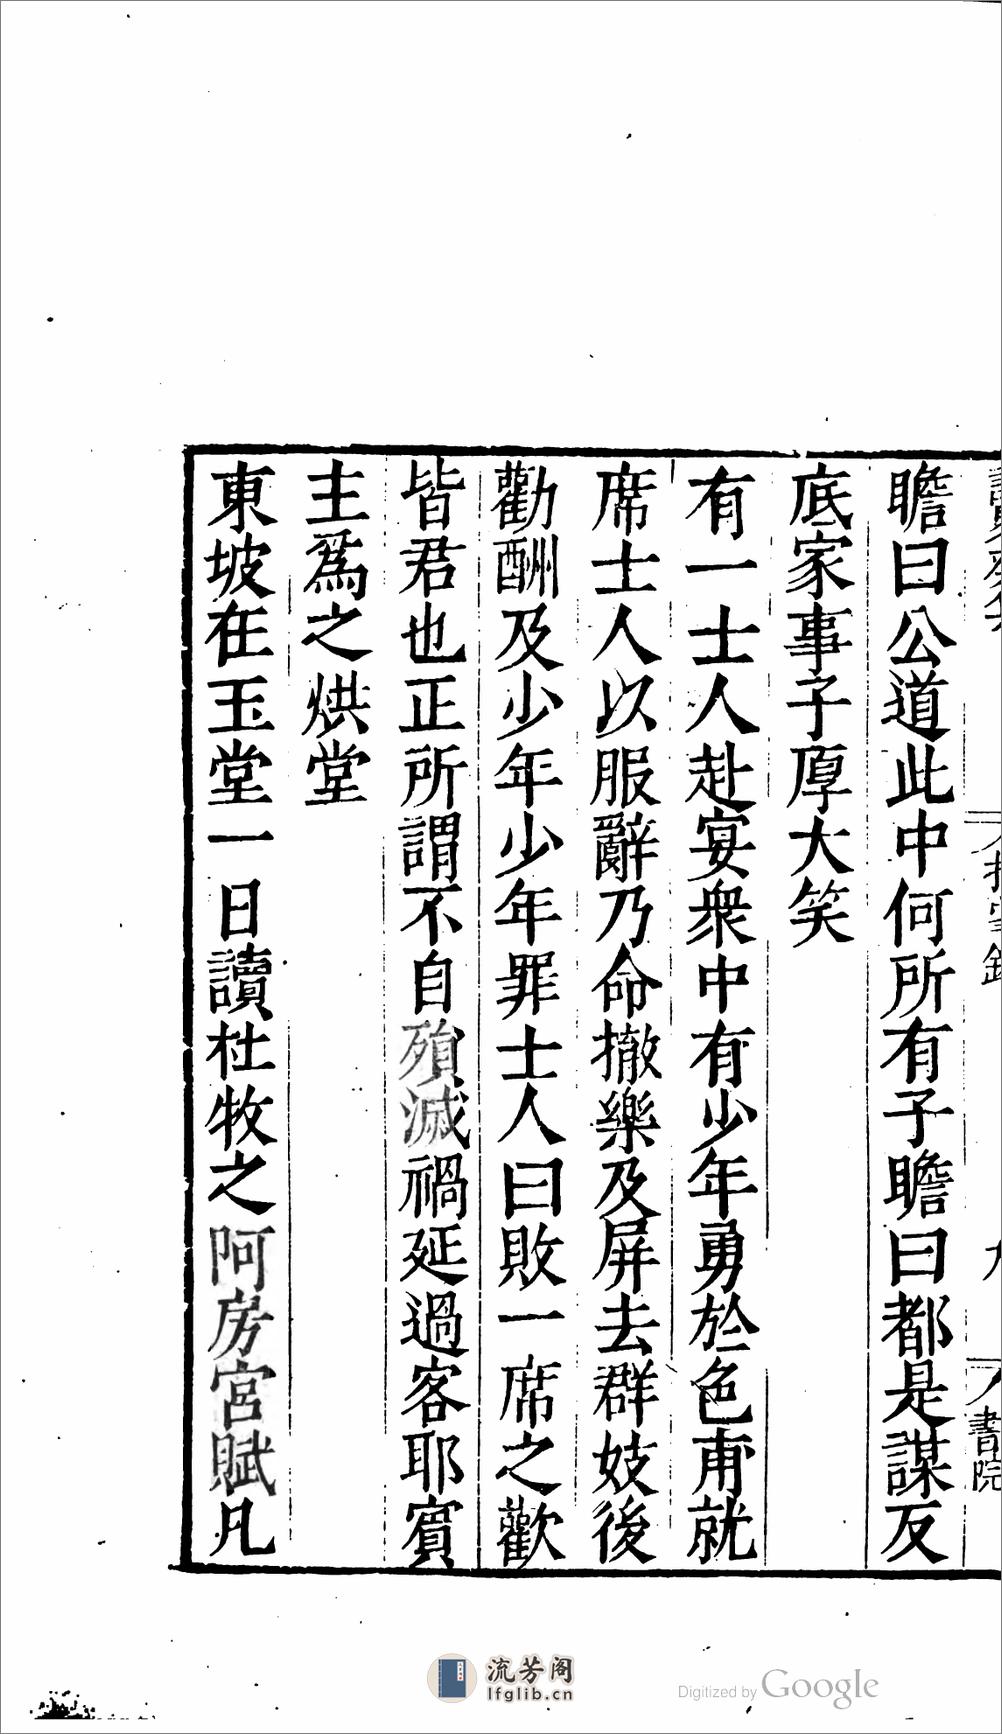 瞻曰公道此中何所有子瞻曰都是謀反
底家事子厚大笑
有一士人赴宴衆中有少年勇於色甫就
席士人以服辭乃命撤樂及屏去群妓後
勸酬及少年少年罪士人曰敗一席之歡
皆君也正所謂不自殞滅禍延過客耶賓
主爲之烘堂
東坡在玉堂一日讀杜牧之阿房宮賦凡
書院
流芳阁
lfglib.cn
Digitized by Google